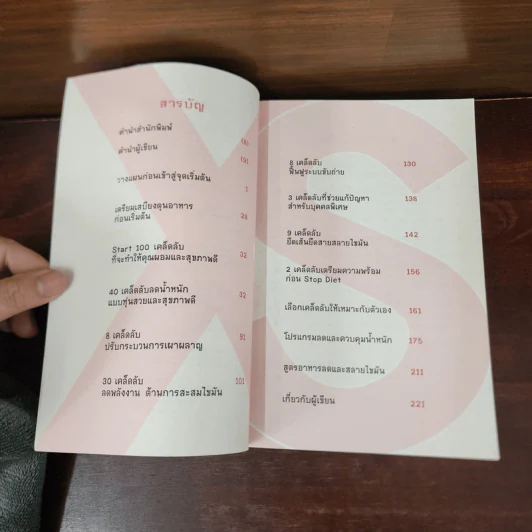 สารบัญ
คำนำสำนักพิมพ์
คำนำผู้เขียน
วางแผนก่อนเข้าสู่จุดเริ่มต้น 1
เตรียมเสบียงตุนอาหาร
ก่อนเริ่มต้น 28
Start 100 เคล็ดลับ
ที่จะทำให้คุณผอมและสุขภาพดี 32
40 เคล็ดลับลดน้ำหนัก
แบบหุ่นสวยและสุขภาพดี 32
8 เคล็ดลับ
ปรับกระบวนการเผาผลาญ 91
30 เคล็ดลับ
ลดพลังงาน ต้านการสะสมไขมัน 101
8 เคล็ดลับ 130
ฟื้นฟูระบบขับถ่าย
3 เคล็ดลับที่ช่วยแก้ปัญหา 138
สำหรับบุคคลพิเศษ
9 เคล็ดลับ 142
ยืดเส้นยืดสายสลายไขมัน
2 เคล็ดลับเตรียมความพร้อม 156
ก่อน Stop Diet
เลือกเคล็ดลับให้เหมาะกับตัวเอง 161
โปรแกรมลดและควบคุมน้ำหนัก 175
สูตรอาหารลดและสลายไขมัน 211
เกี่ยวกับผู้เขียน 221